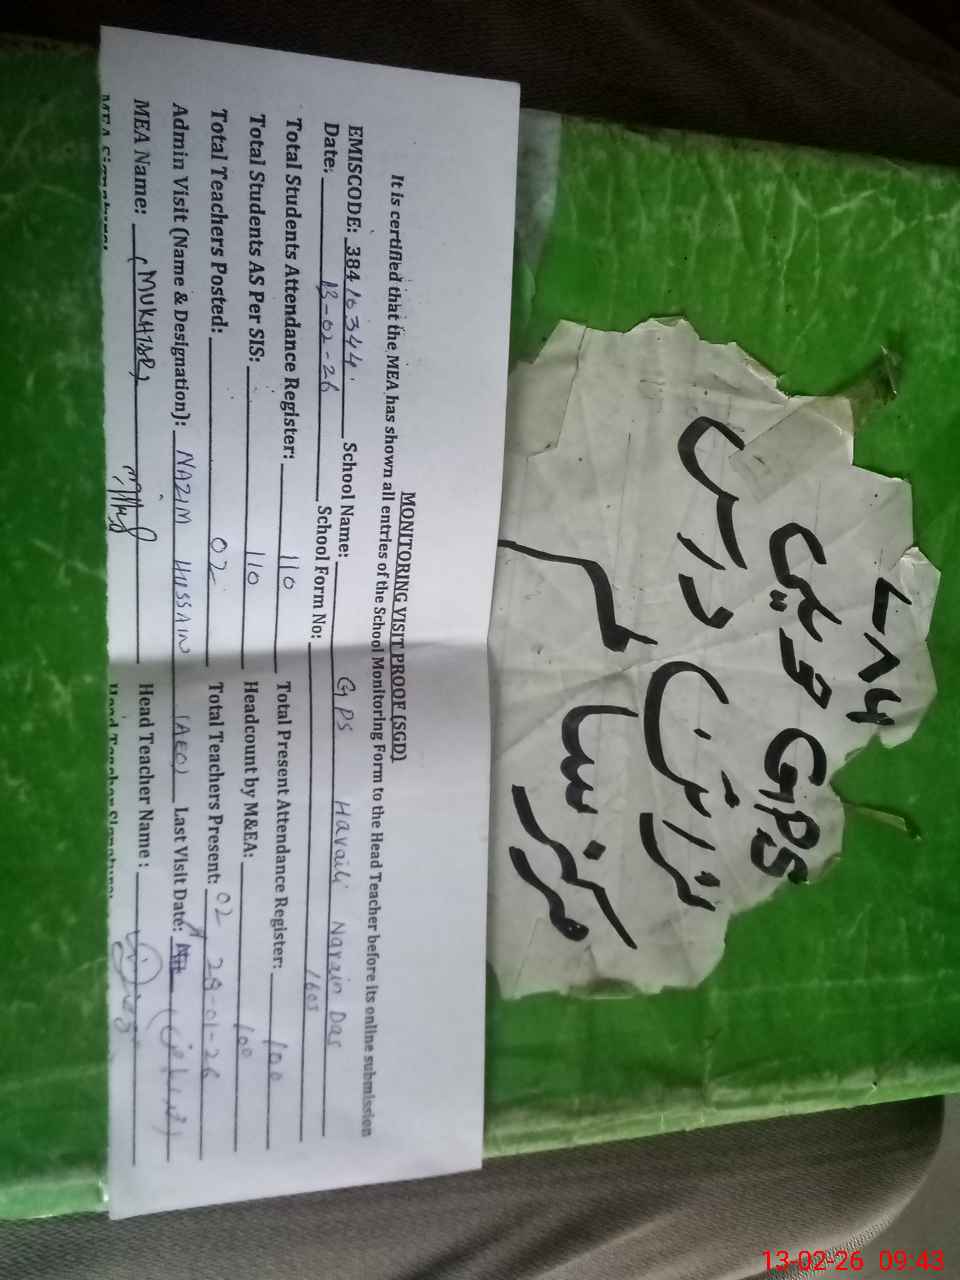 MONITORING VISIT PROOF (SGD)
It is certified that the MEA has shown all entries of the School Monitoring Form to the Head Teacher before its online submission
EMISCODE: 38410344 School Name: GPS Havaili Narain Das
Date: 13-02-26 School Form No: 1603
Total Students Attendance Register: 110 Total Present Attendance Register: 100
Total Students AS Per SIS: 110 Headcount by M&EA: 100
Total Teachers Posted: 02 Total Teachers Present: 02
Admin Visit (Name & Designation): NAZIM HUSSAIN (AEO) Last Visit Date: 29-01-26
MEA Name: Head Teacher Name :
MEA Signature: Head Teacher Signature:
۷۸۶
GPS حویلی
نرائن داس
مرکز
13-02-26 09:43